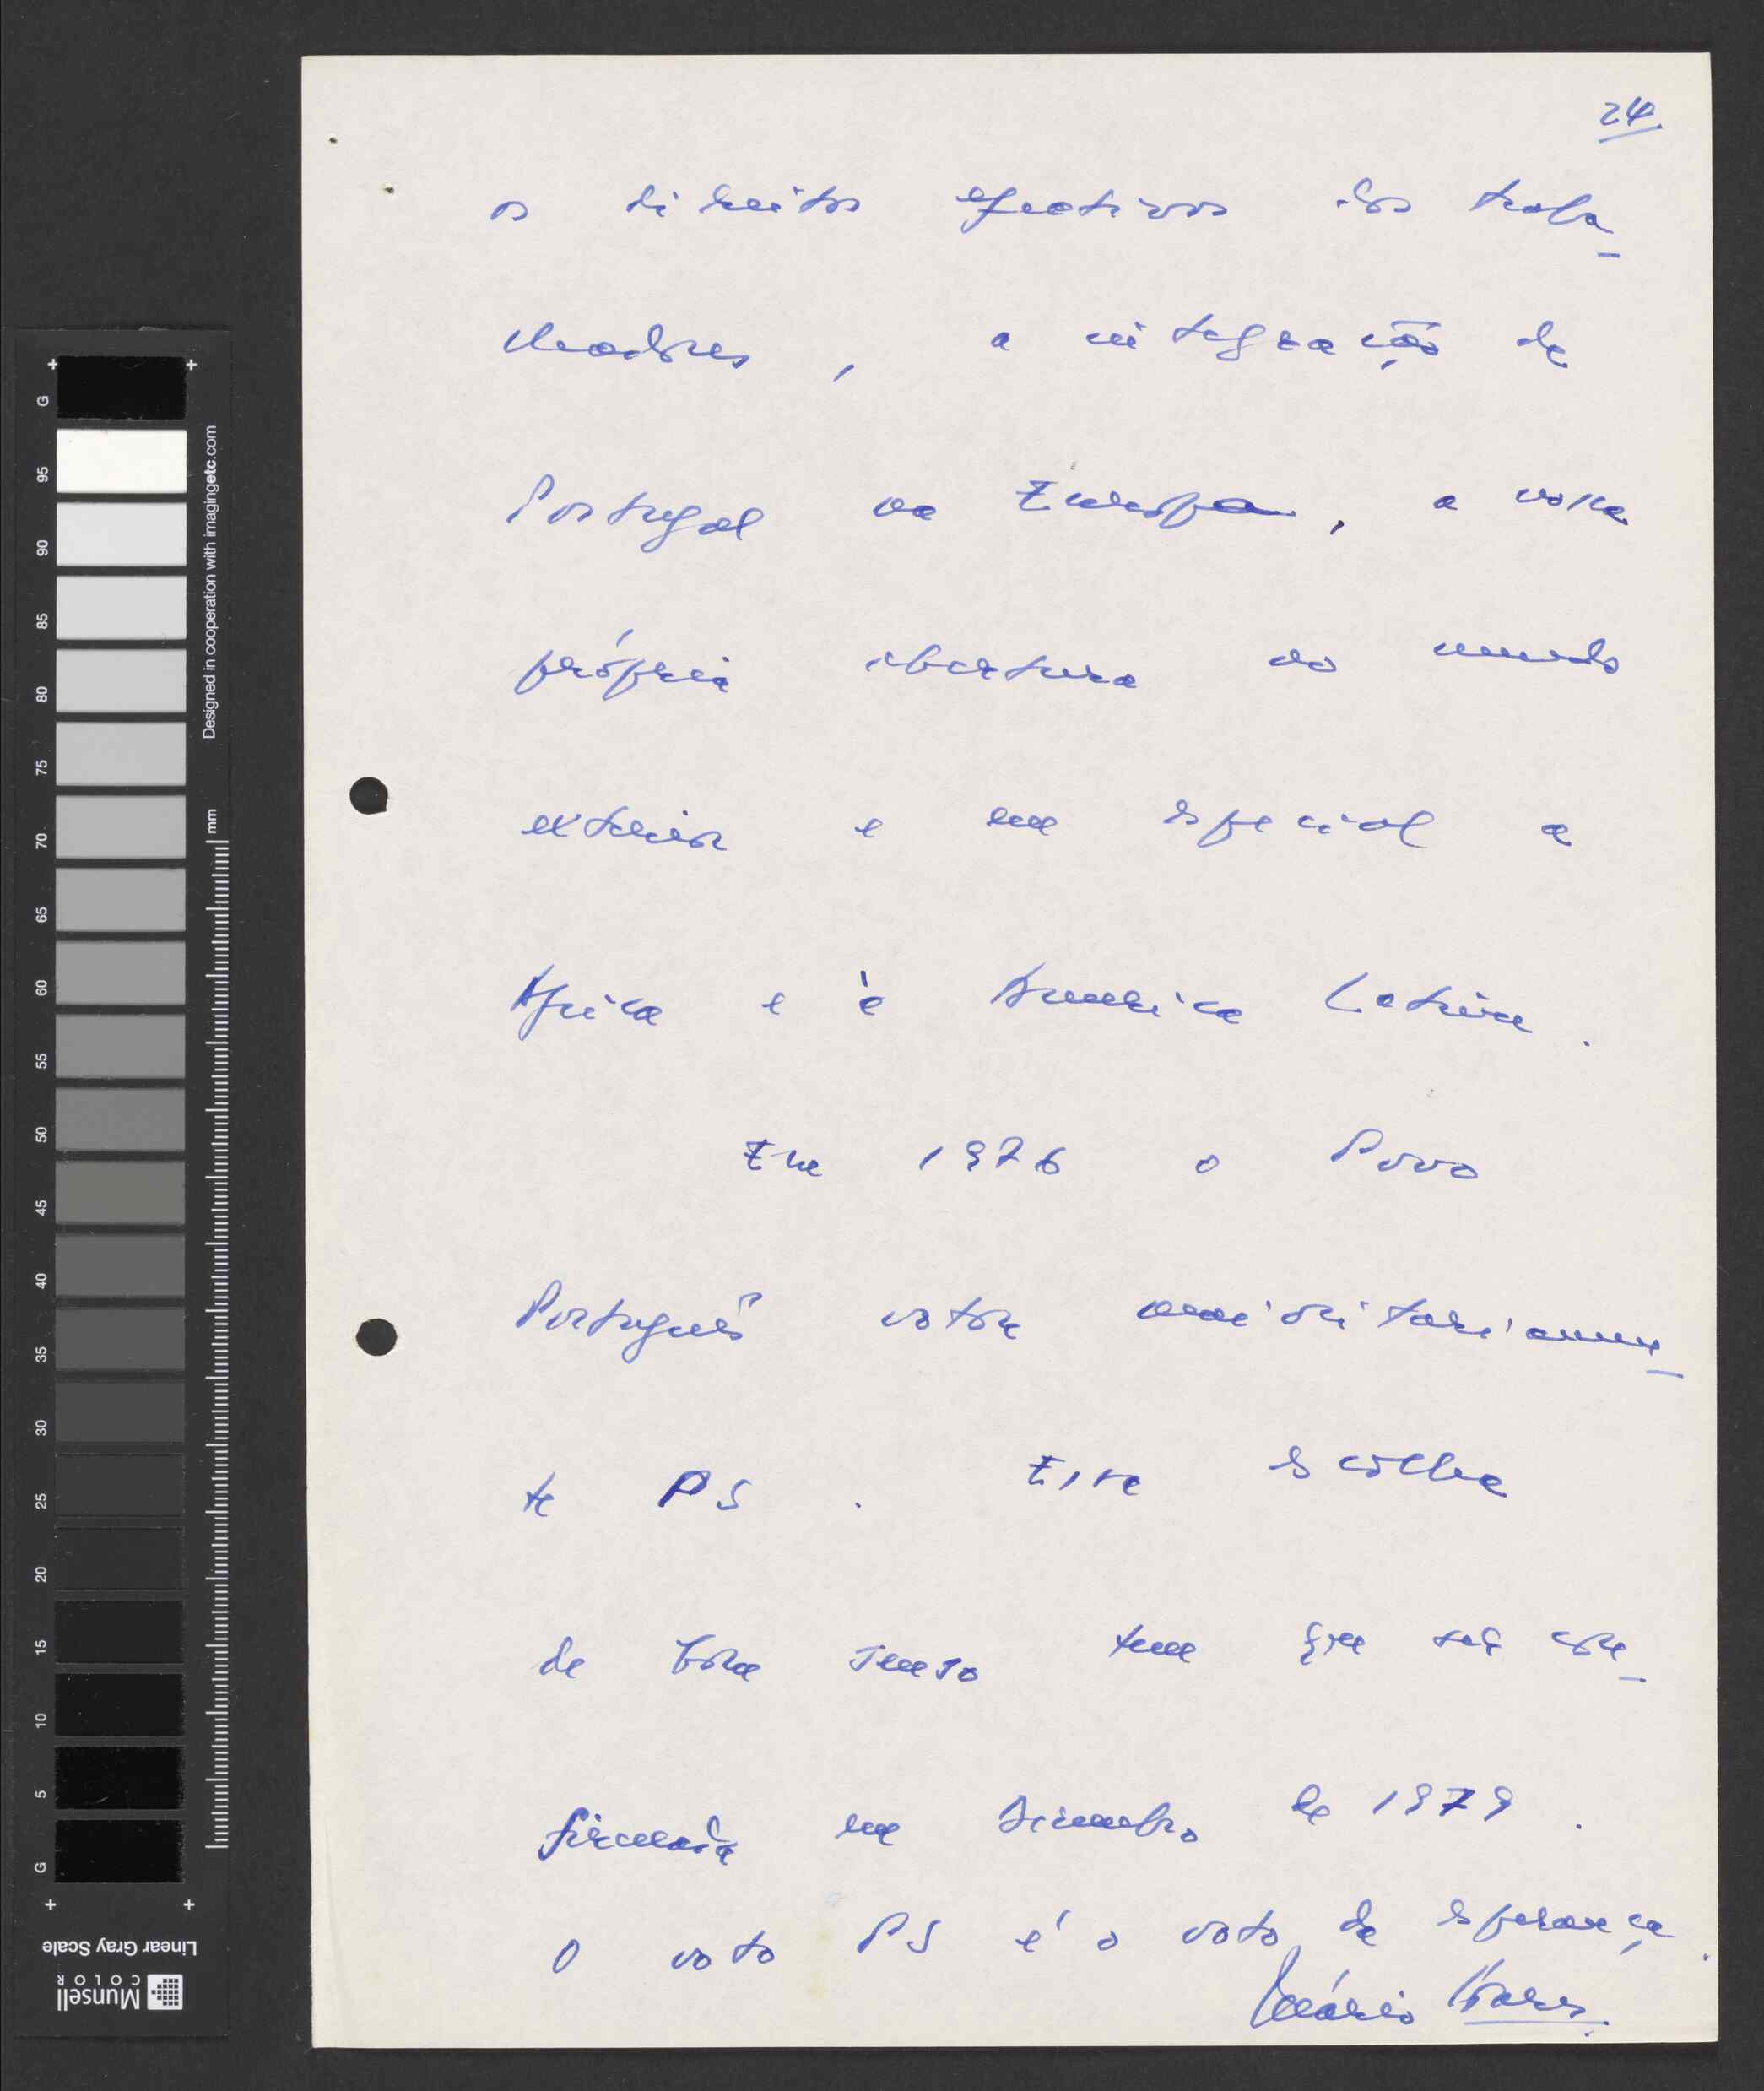 24.
os direitos efectivos dos traba-
lhadores, a integração de
Portugal na Europa, a nossa
própria abertura ao mundo
exterior e em especial a
Africa e à America Latina.
Em 1976 o Povo
Português votou maioritariamen-
te PS. Essa escolha
de bom senso tem que ser con-
firmada em Dezembro de 1979.
O voto PS é o voto da esperança.
Mário Soares
G
95
90
85
80
75
70
65
60
55
50
45
40
35
30
25
20
15
10
5
G
Designed in cooperation with imagingetc.com
mm
Linear Gray Scale
Munsell
COLOR